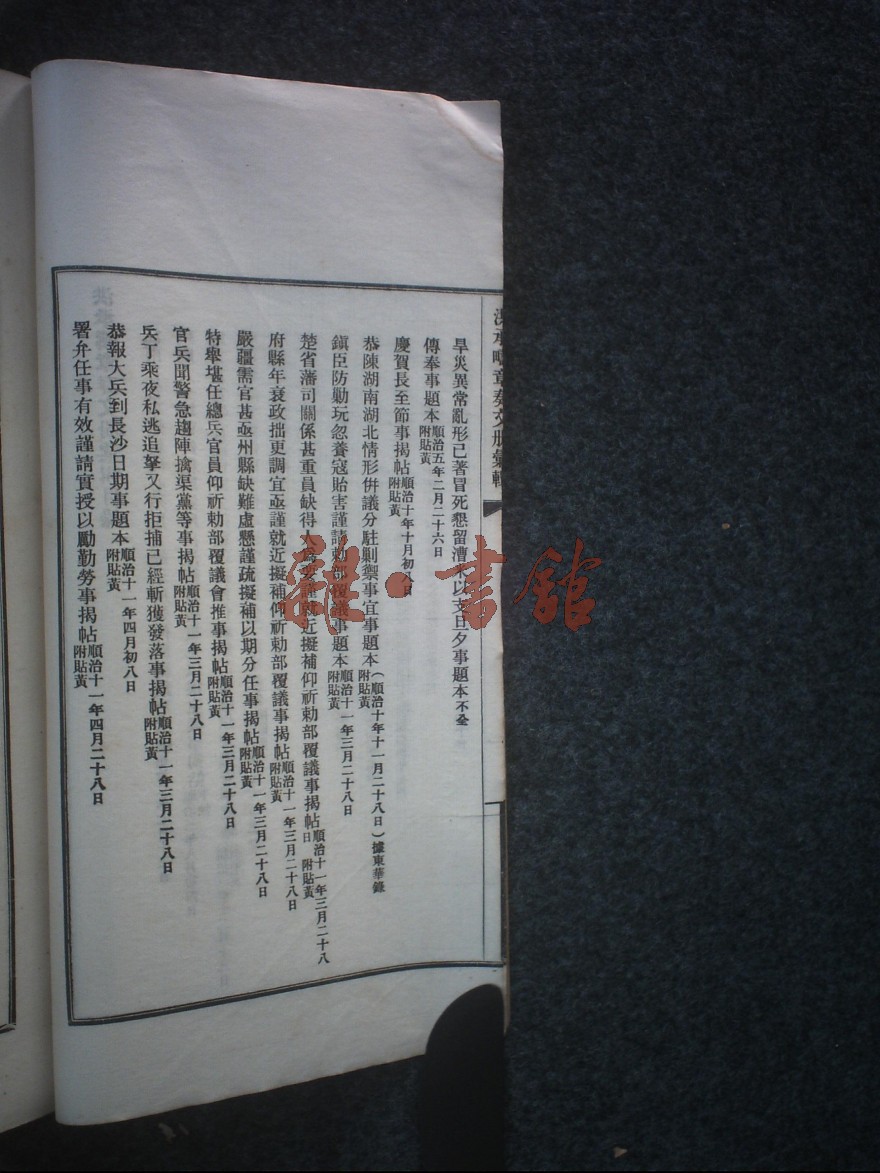 洪承疇章奏文册彙輯
旱災異常亂形已著冒死懇留漕米以支旦夕事題本不全
傳奉事題本順治五年二月二十六日附貼黃
慶賀長至節事揭帖順治十年十月初八日附貼黃
恭陳湖南湖北情形併議分駐剿禦事宜事題本(順治十年十一月二十八日)據東華錄附貼黃
鎭臣防勦玩忽養寇貽害謹請勅部覆議事題本順治十一年三月二十八日附貼黃
楚省藩司關係甚重員缺得人爲要謹就近擬補仰祈勅部覆議事揭帖順治十一年三月二十八日附貼黃
府縣年衰政拙更調宜亟謹就近擬補仰祈勅部覆議事揭帖順治十一年三月二十八日附貼黃
嚴疆需官甚亟州縣缺難虛懸謹疏擬補以期分任事揭帖順治十一年三月二十八日附貼黃
特舉堪任總兵官員仰祈勅部覆議會推事揭帖順治十一年三月二十八日附貼黃
官兵聞警急趨陣擒渠黨等事揭帖順治十一年三月二十八日附貼黃
兵丁乘夜私逃追拏又行拒捕已經斬獲發落事揭帖順治十一年三月二十八日附貼黃
恭報大兵到長沙日期事題本順治十一年四月初八日附貼黃
署弁任事有效謹請實授以勵勤勞事揭帖順治十一年四月二十八日附貼黃
雜·書館